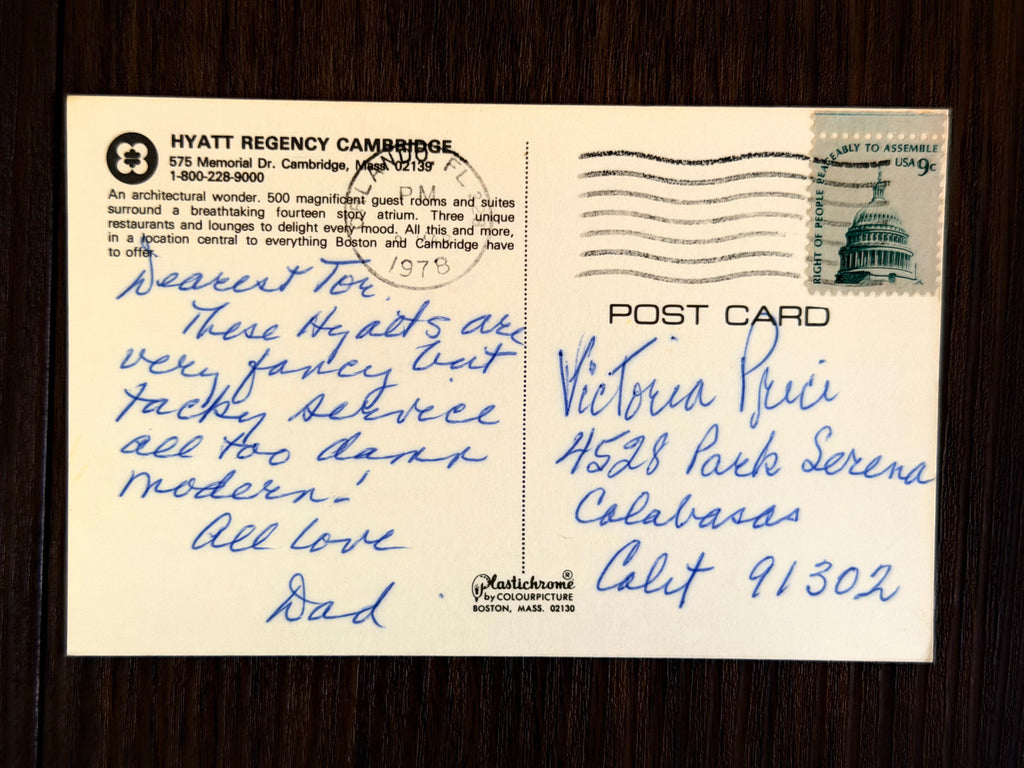 HYATT REGENCY CAMBRIDGE
575 Memorial Dr. Cambridge, Mass. 02139
1-800-228-9000
An architectural wonder. 500 magnificent guest rooms and suites
surround a breathtaking fourteen story atrium. Three unique
restaurants and lounges to delight every mood. All this and more,
in a location central to everything Boston and Cambridge have
to offer.
Dearest Tor.
These Hyatts are
very fancy but
tacky service
all too damn
modern!
All love
Dad
ORLANDO, FL
PM
1978
RIGHT OF PEOPLE PEACEABLY TO ASSEMBLE
USA 9c
POST CARD
Victoria Price
4528 Park Serena
Calabasas
Calif 91302
Plastichrome®
by COLOURPICTURE
BOSTON, MASS. 02130